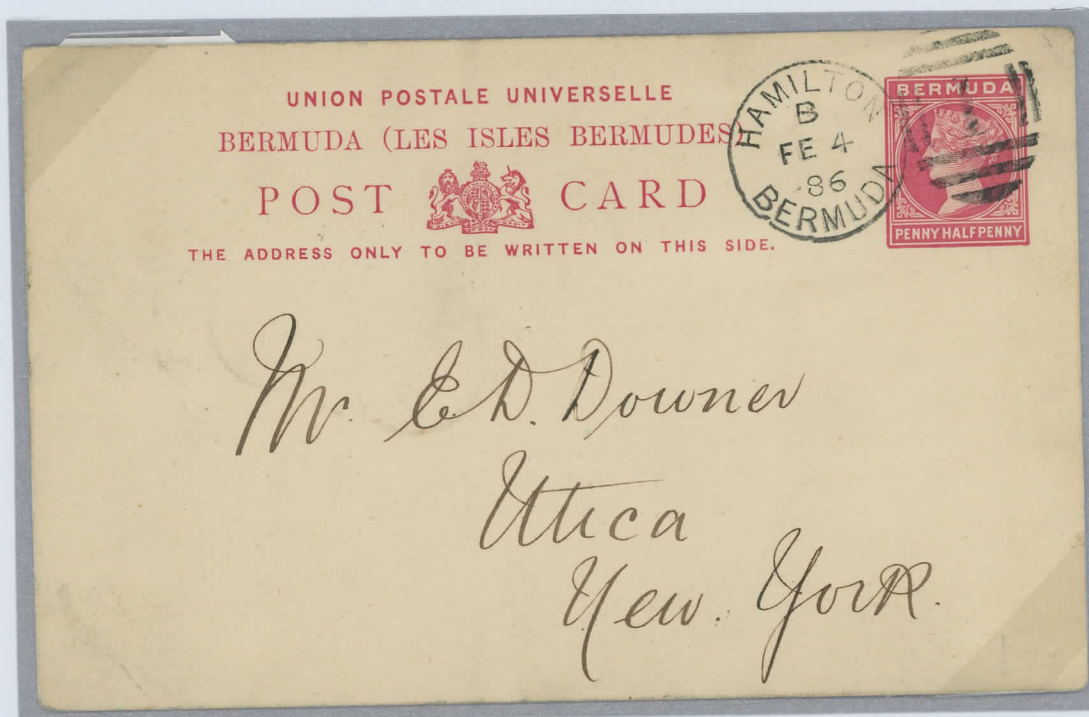 UNION POSTALE UNIVERSELLE
BERMUDA (LES ISLES BERMUDES)
POST CARD
THE ADDRESS ONLY TO BE WRITTEN ON THIS SIDE.
HAMILTON
B
FE 4
86
BERMUDA
BERMUDA
PENNY HALFPENNY
Mr. E. D. Downer
Utica
New. York.